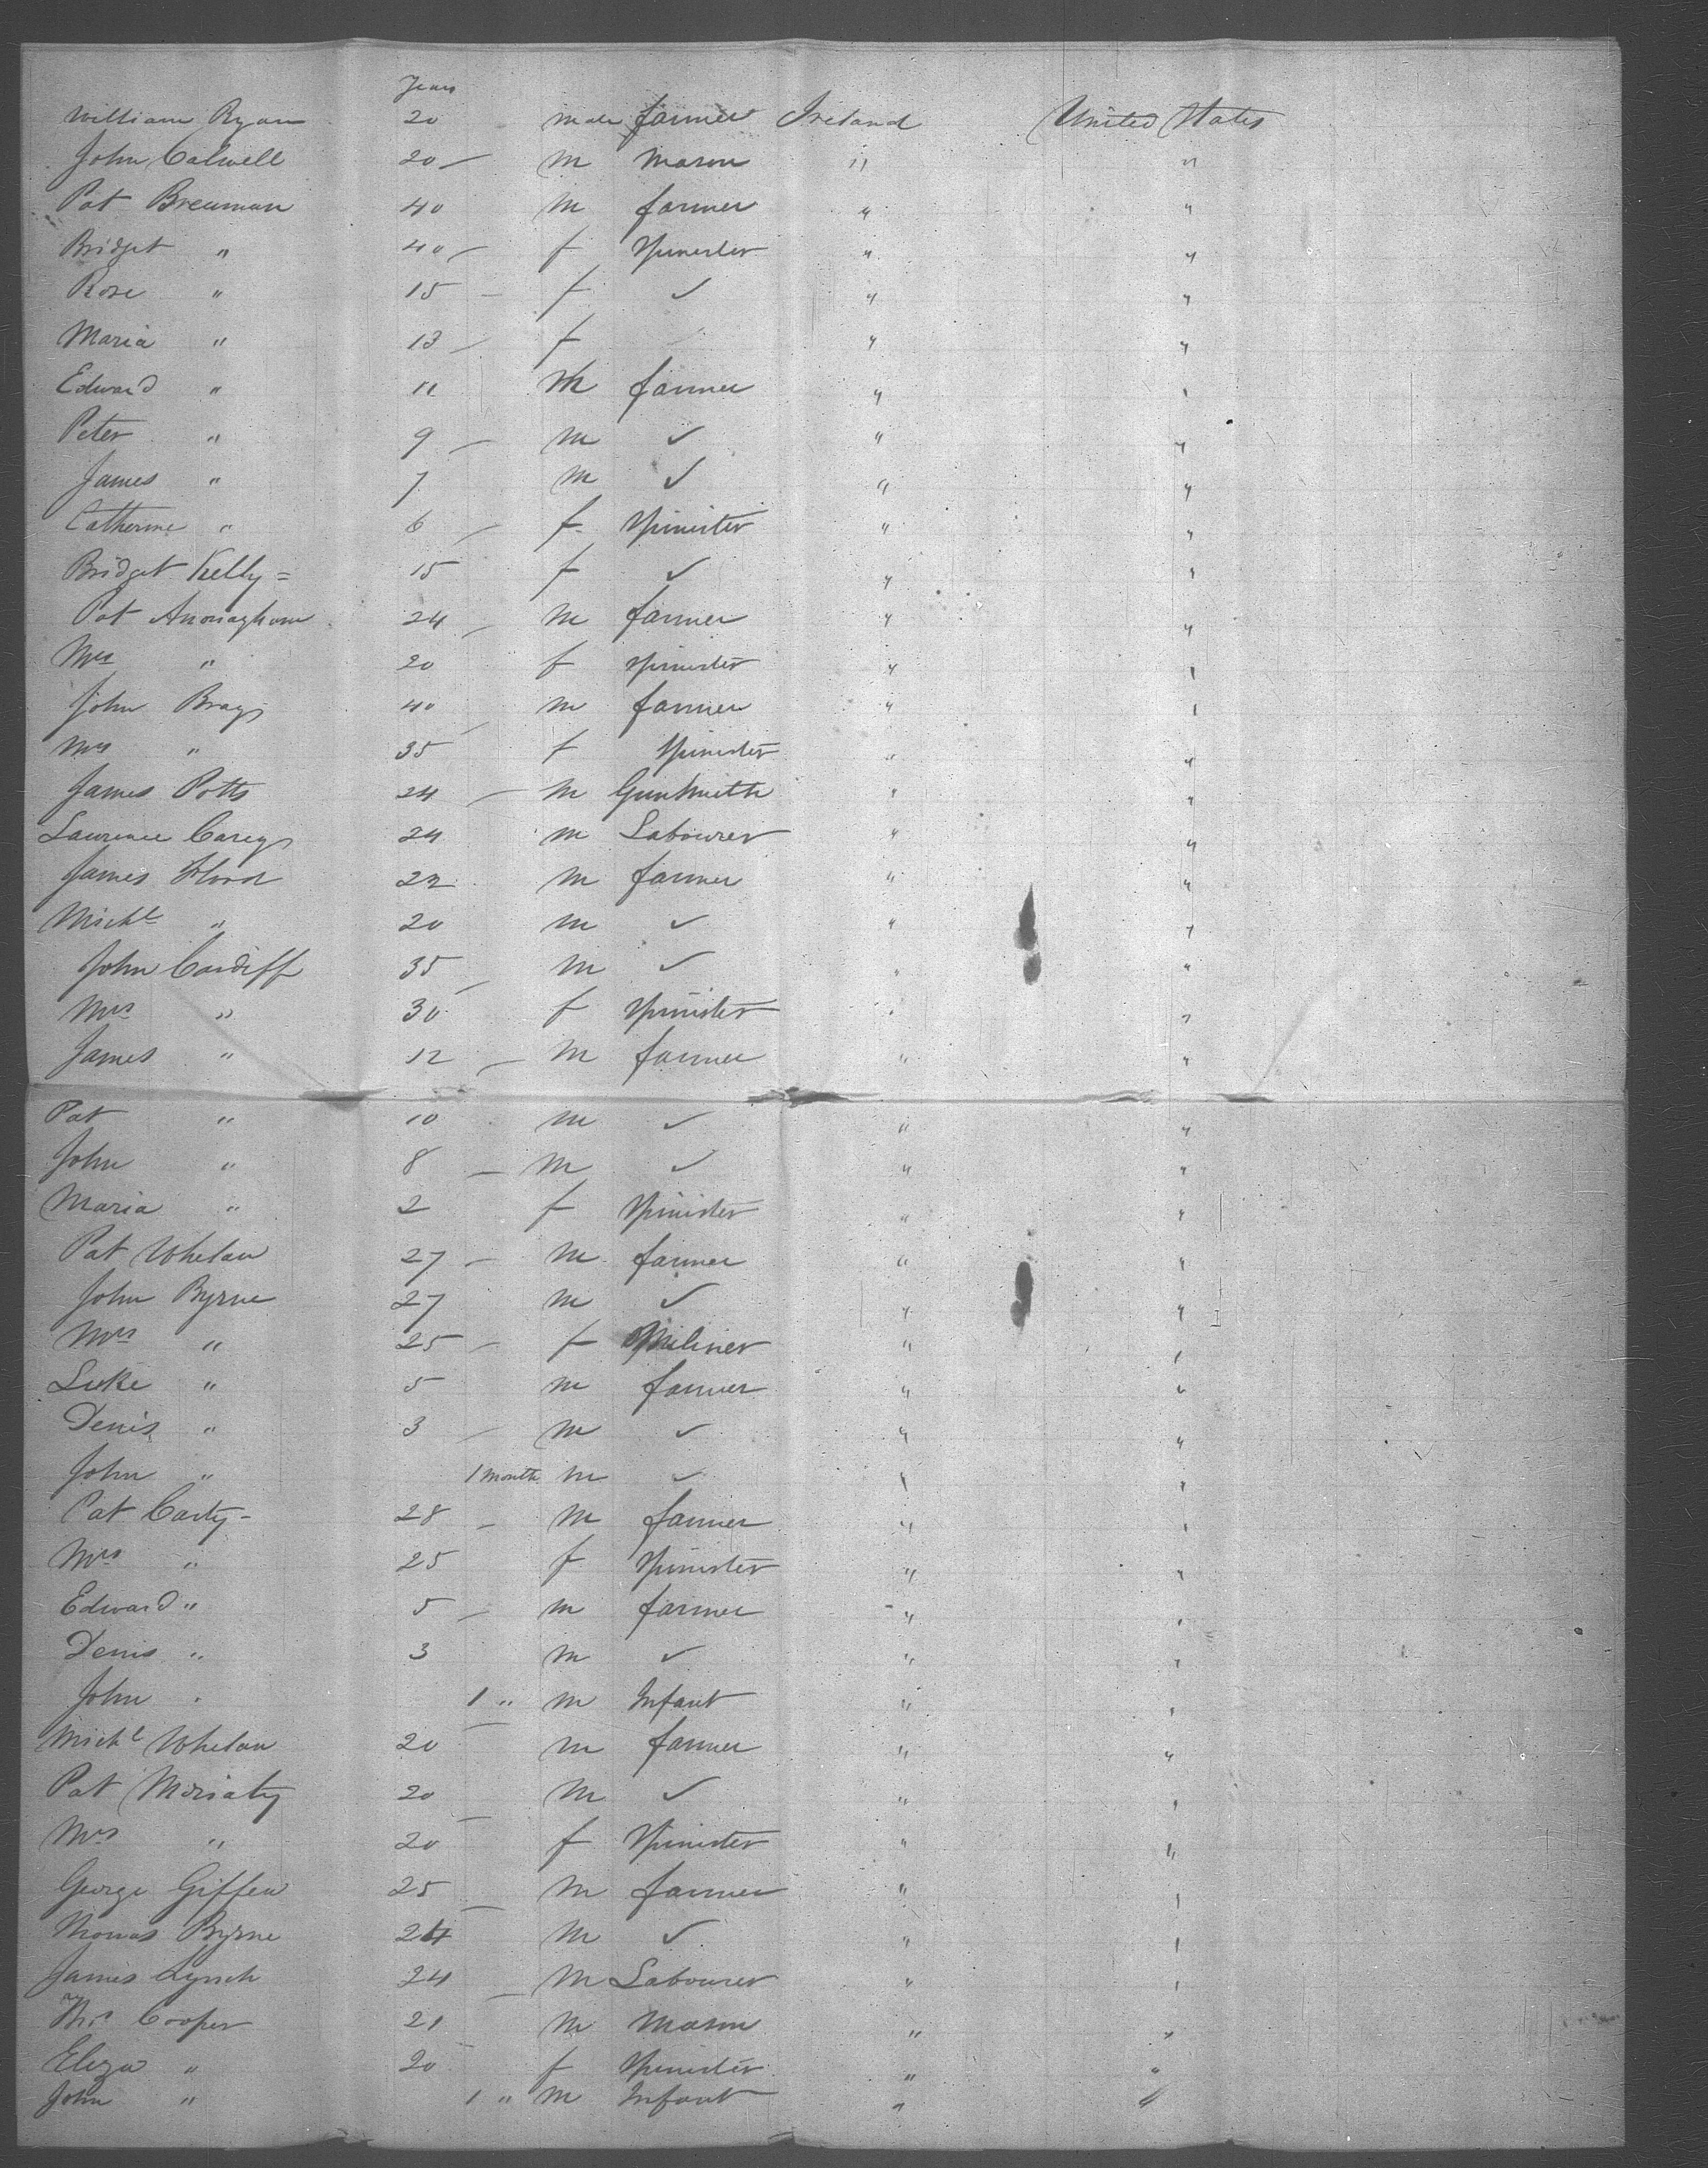 Years
William Ryan 20 male farmer Ireland United States
John Calwell 20 — m mason " "
Pat Breunan 40 m farmer " "
Bridget " 40 — f Spinster " "
Rose " 15 — f ✓ " "
Maria " 13 — f " "
Edward " 11 m farmer " "
Peter " 9 — m ✓ " "
James " 7 m ✓ " "
Catherine " 6 — f Spinister " "
Bridget Kelly = 15 f ✓ " "
Pat 24 — m farmer " "
Mrs " 20 f spinister " "
John Bray 40 — m farmer " "
Mrs " 35 f Spinister " "
James Potts 24 — m Gunsmith " "
Lawrence Carey 24 m Labourer " "
James Flood 22 m farmer " "
Michl " 20 m ✓ " "
John Cardiff 35 — m ✓ " "
Mrs " 30 f Spinister " "
James " 12 — m farmer " "
Pat " 10 m ✓ " "
John " 8 — m ✓ " "
Maria " 2 f Spinister " "
Pat Whelan 27 — m farmer " "
John Byrne 27 m ✓ " "
Mrs " 25 — f Miliner " "
Luke " 5 m farmer " "
Denis " 3 — m ✓ " "
John " 1 month m ✓ " "
Pat Carty - 28 — m farmer " "
Mrs " 25 f Spinister " "
Edward " 5 — m farmer " "
Denis " 3 m ✓ " "
John " 1 " m Infant " "
Michl Whelan 20 — m farmer " "
Pat Moriaty 20 m ✓ " "
Mrs " 20 — f Spinister " "
George Giffen 25 m farmer " "
Thomas Byrne 24 — m ✓ " "
James Lynch 24 m Labourer " "
Cooper 21 — m Mason " "
Eliza " 20 — f Spinister " "
John " 1 " m Infant " "